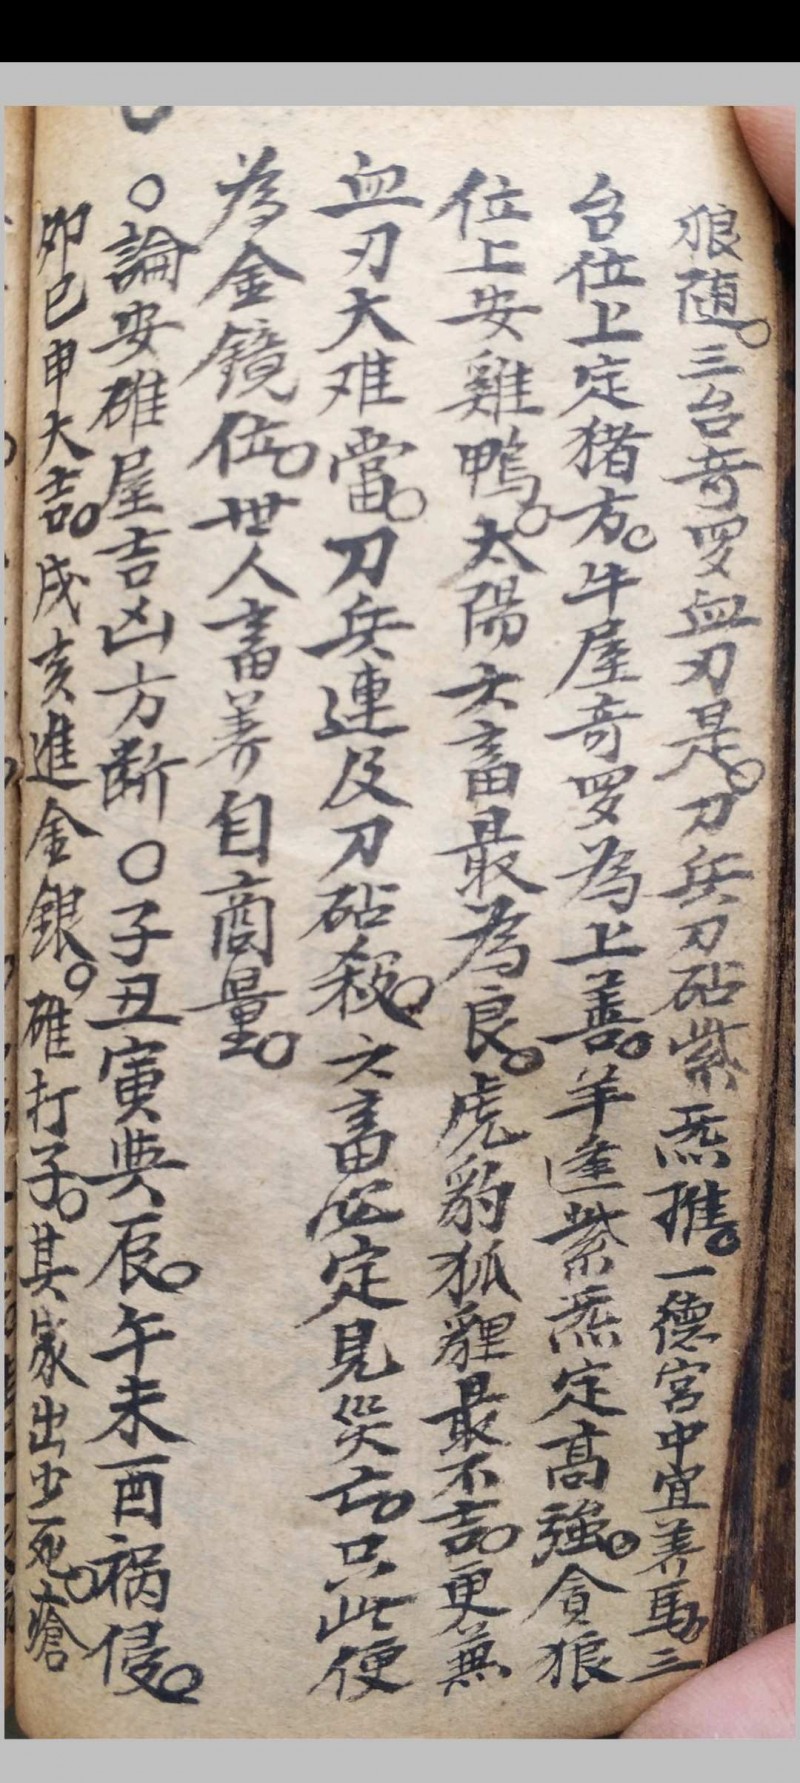 狼随。三台奇罗血刃是。刀兵刀砧紫炁推。一德宮中宜养馬。三
台位上定猪方。牛屋奇罗為上善。羊逢紫炁定高強。貪狼
位上安雞鴨。太陽六畜最為良。虎豹狐狸最不吉。更無
血刃大难當。刀兵連及刀砧殺。六畜必定見災亡。只此便
為金鏡位。世人畜养自商量。
○論安碓屋吉凶方断○子丑寅與辰。午未酉祸侵。
卯巳申大吉。戌亥進金銀。碓打子。其家出少死瘡